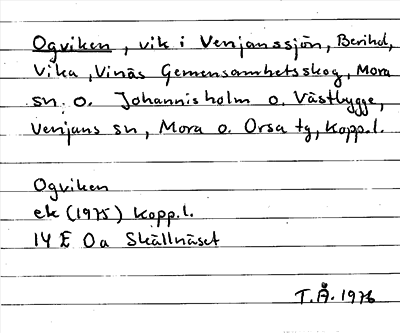 Ogviken, vik i Venjanssjön, Berihd,
Vika, Vinäs Gemensamhetsskog, Mora
sn. o. Johannisholm o. Västbygge,
Venjans sn, Mora o. Orsa tg, Kopp.l.
Ogviken
ek (1975) Kopp.l.
14 E 0a Skällnäset
T.Å. 1976